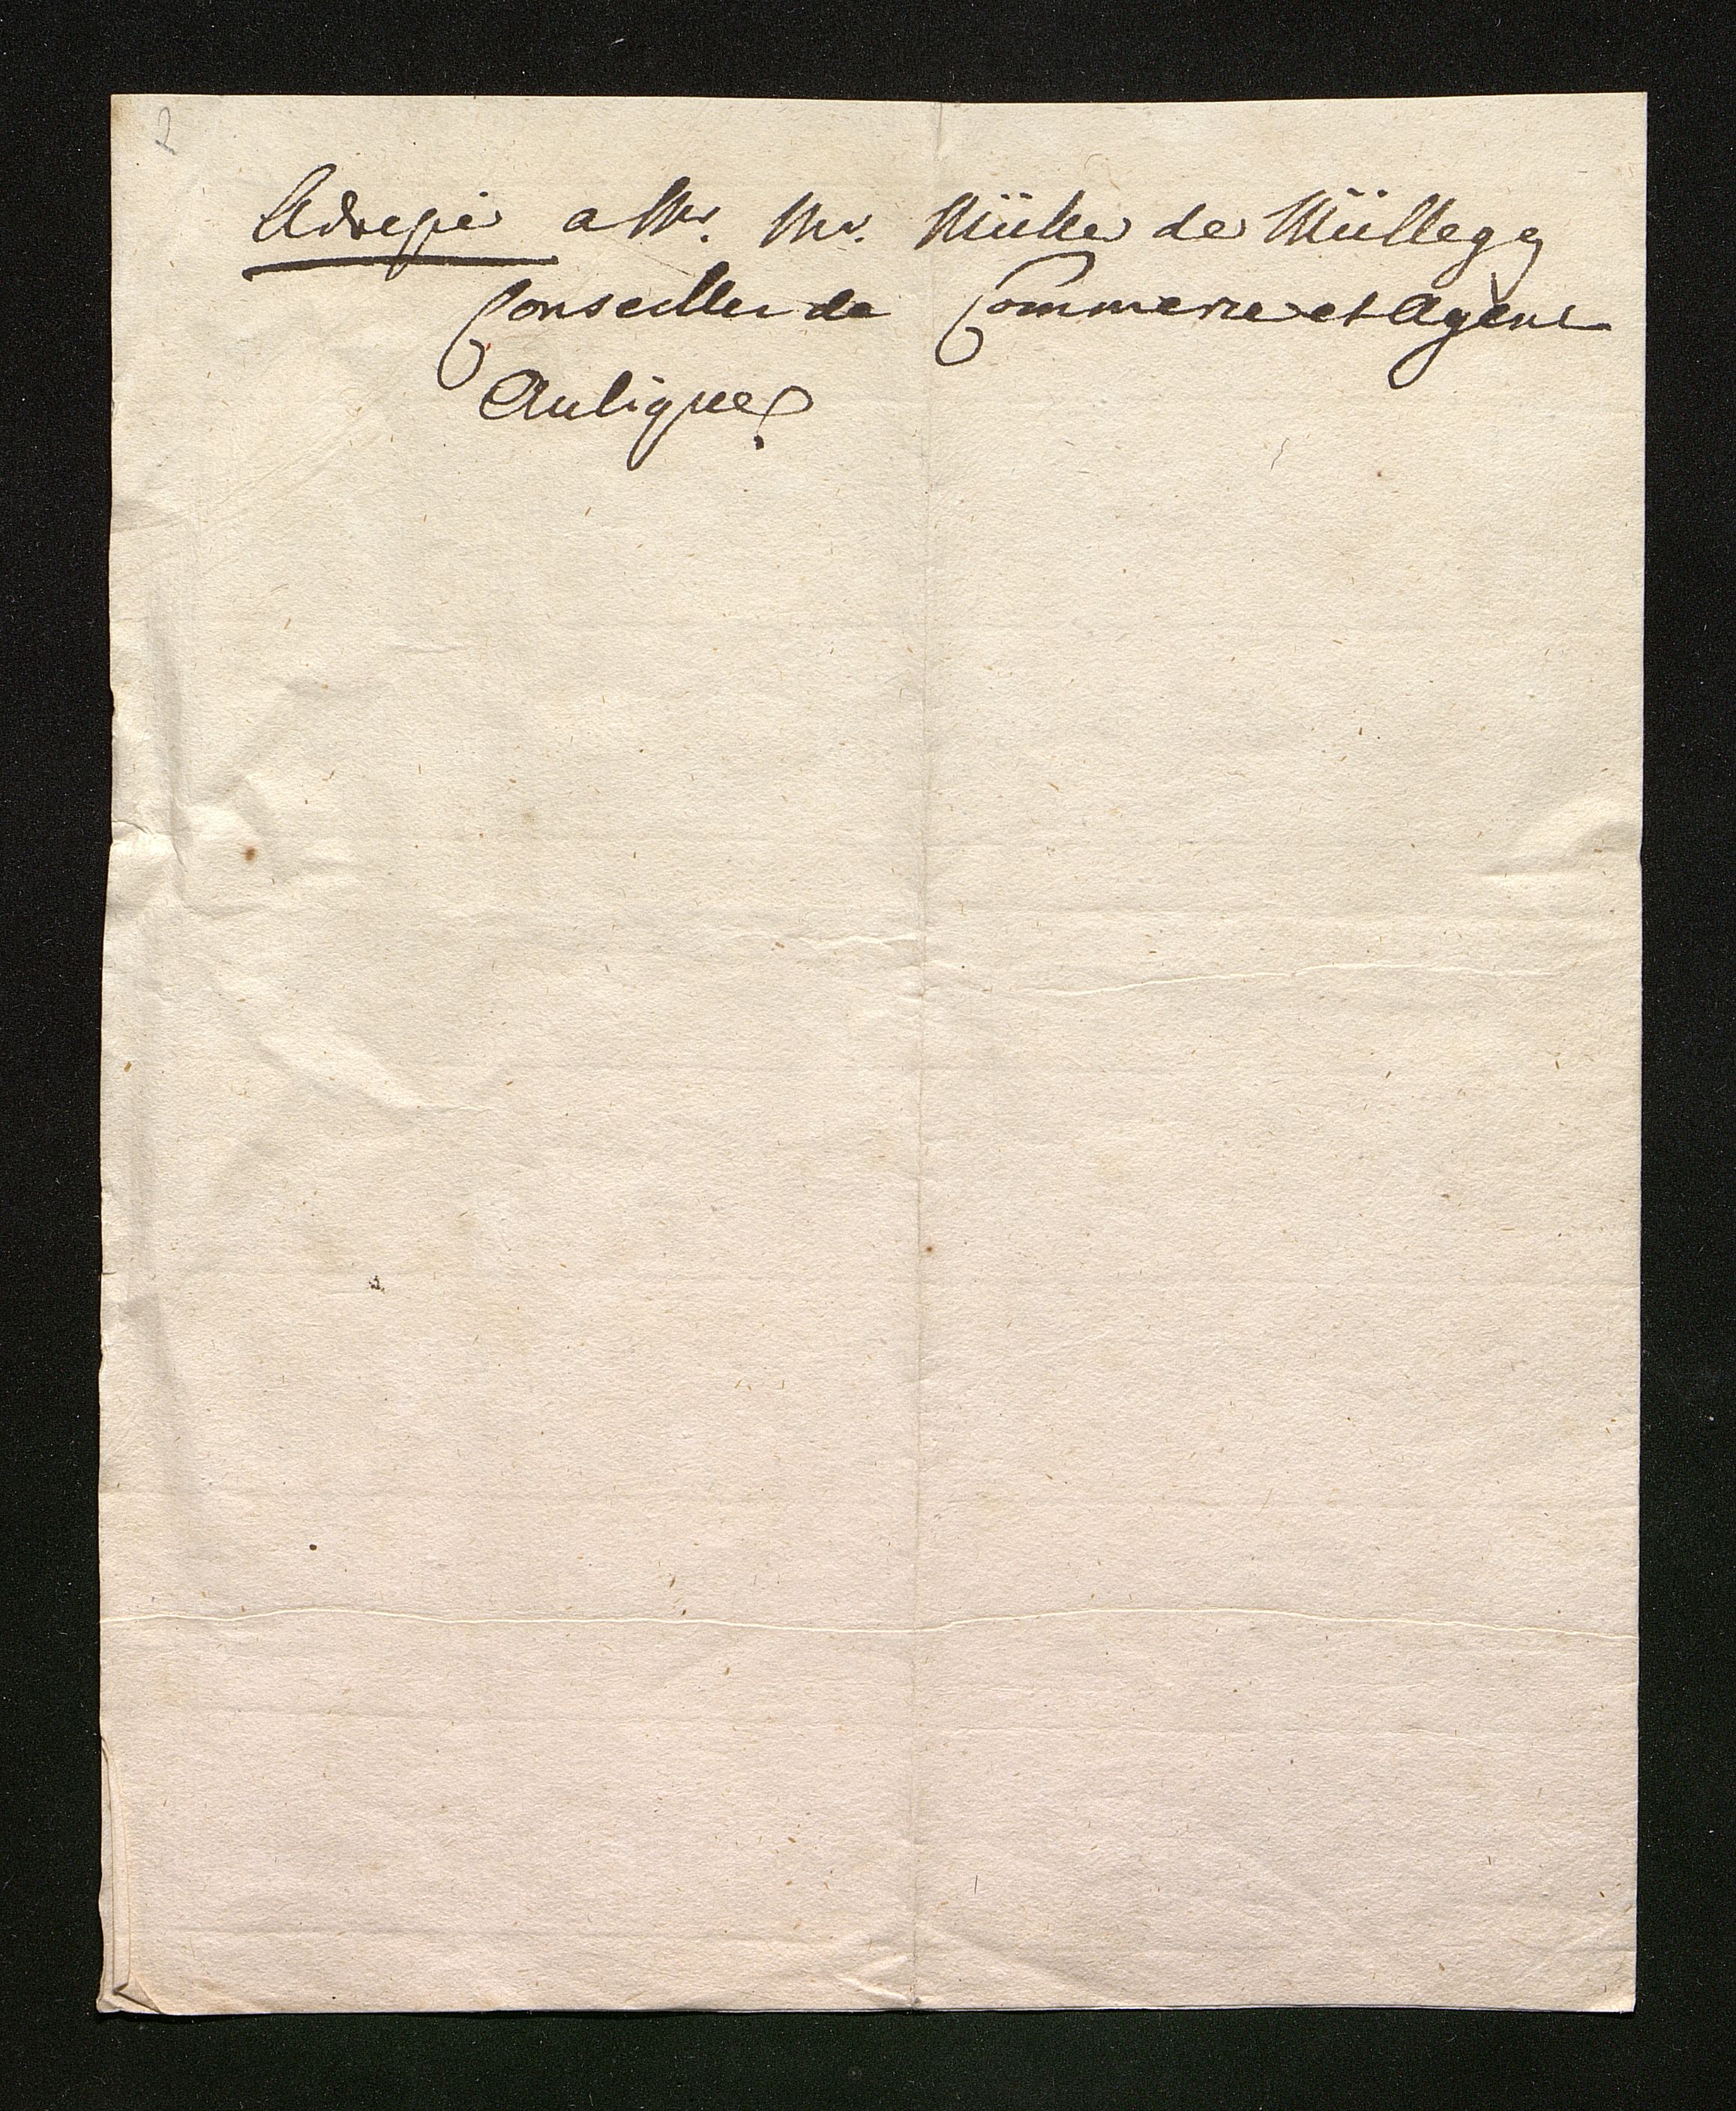 2
Adressé a Mr. Mr. Müller de Müllegg
Conseiller de Commerce et Agent
Aulique